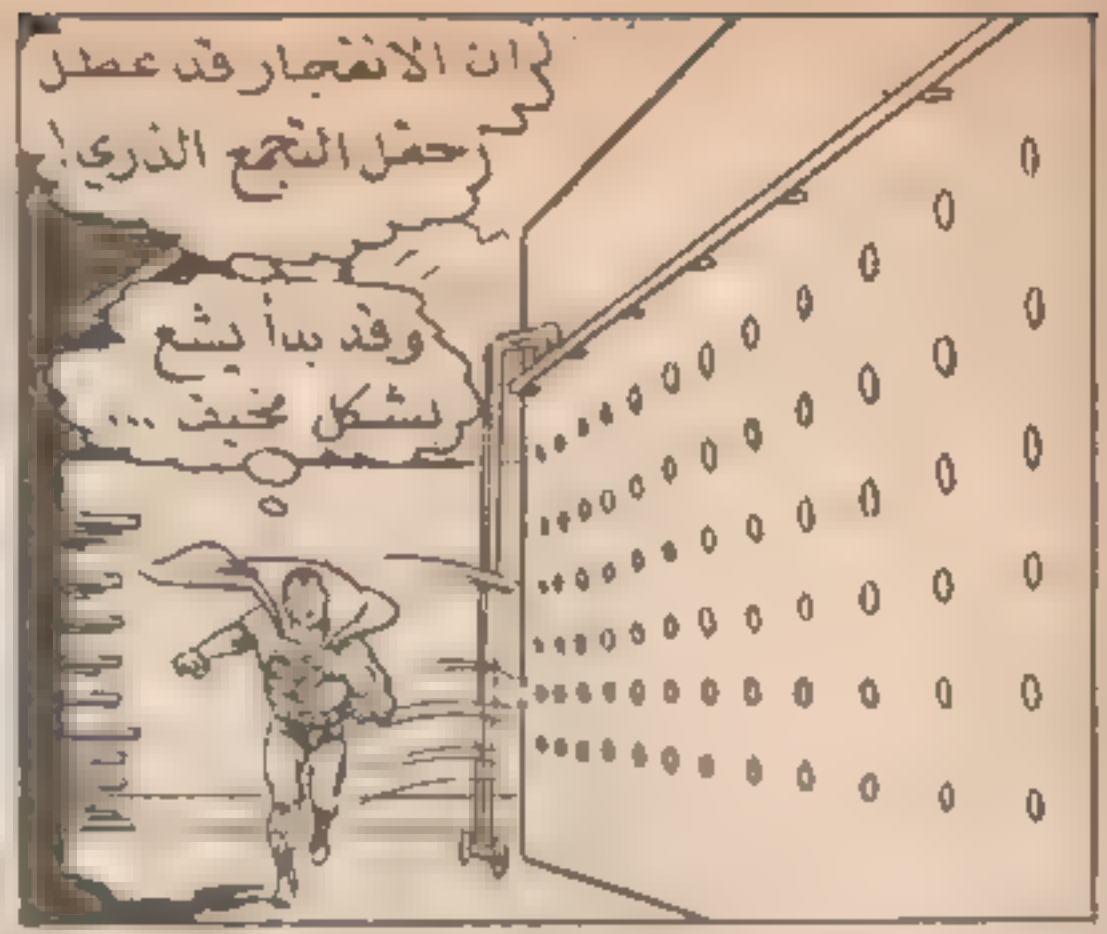 ان الانفجار قد عطل
حقل التجمع الذري!
وقد بدأ يشع
بشكل مخيف ...